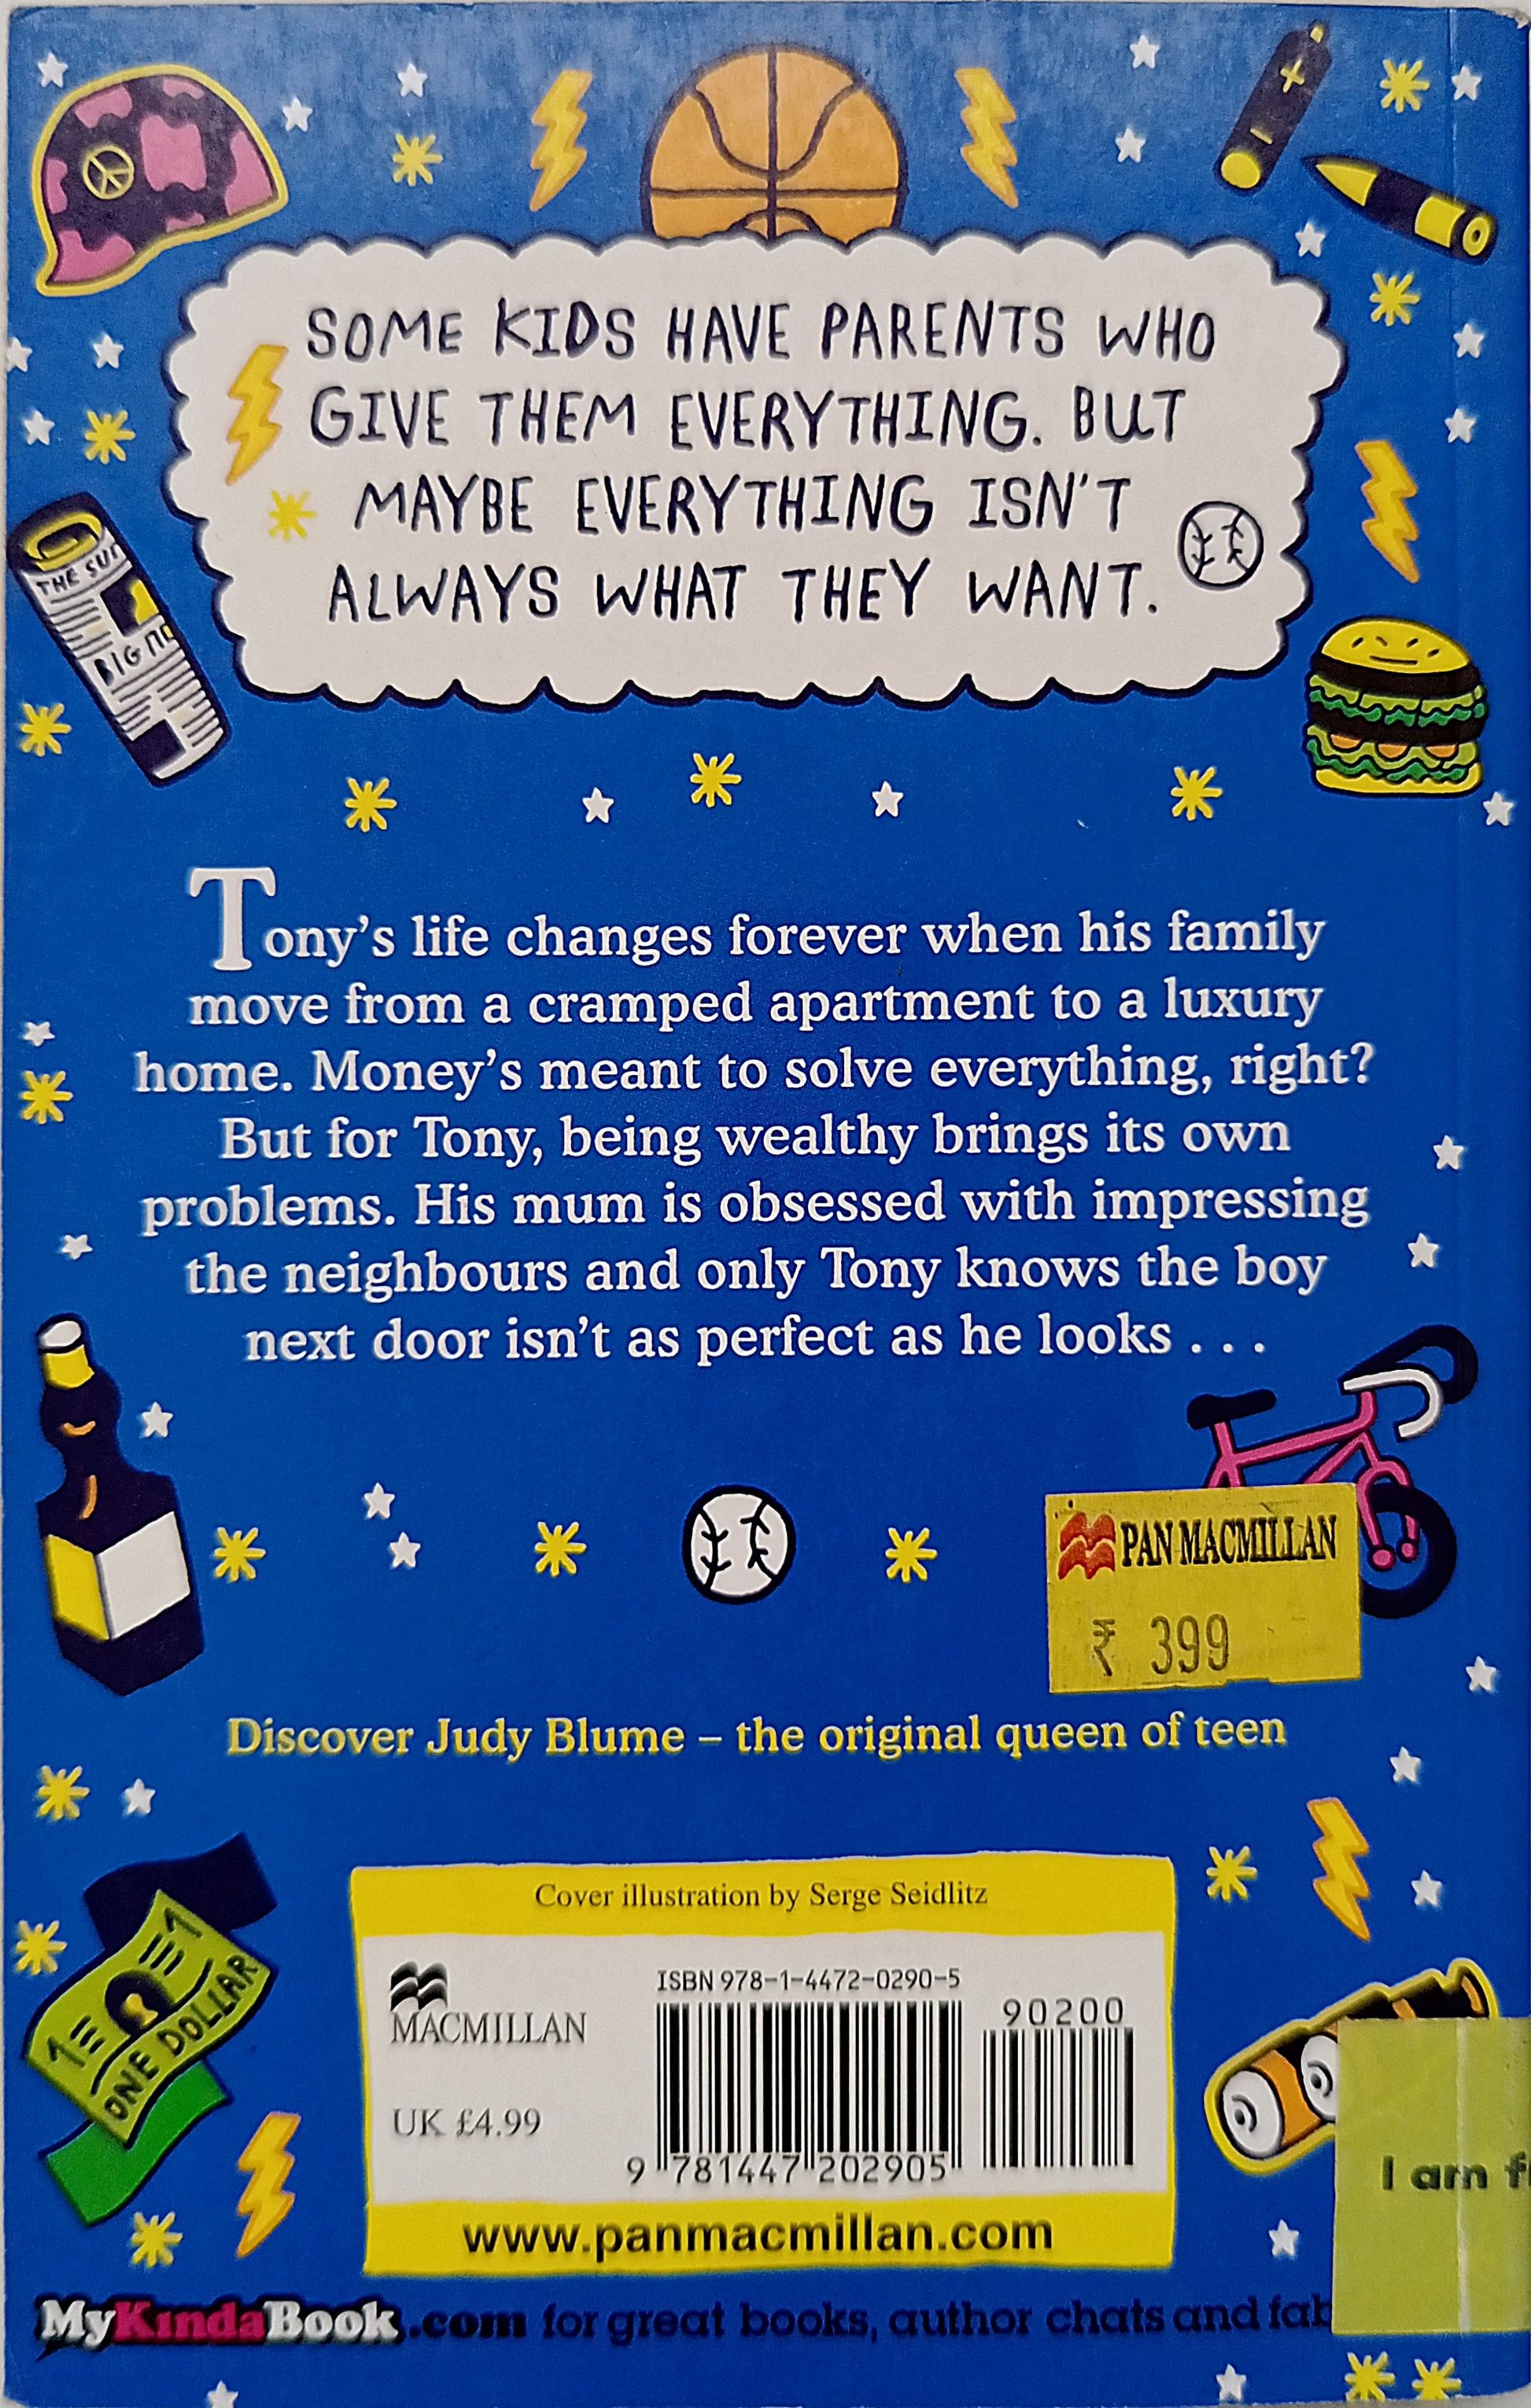 SOME KIDS HAVE PARENTS WHO
GIVE THEM EVERYTHING. BUT
MAYBE EVERYTHING ISN'T
ALWAYS WHAT THEY WANT.
THE SUN
BIG
Tony's life changes forever when his family
move from a cramped apartment to a luxury
home. Money's meant to solve everything, right?
But for Tony, being wealthy brings its own
problems. His mum is obsessed with impressing
the neighbours and only Tony knows the boy
next door isn't as perfect as he looks . . .
PAN MACMILLAN
₹ 399
Discover Judy Blume – the original queen of teen
1 1
ONE DOLLAR
Cover illustration by Serge Seidlitz
MACMILLAN
UK £4.99
ISBN 978-1-4472-0290-5
90200
9 781447 202905
www.panmacmillan.com
I am
MyKindaBook.com for great books, author chats and